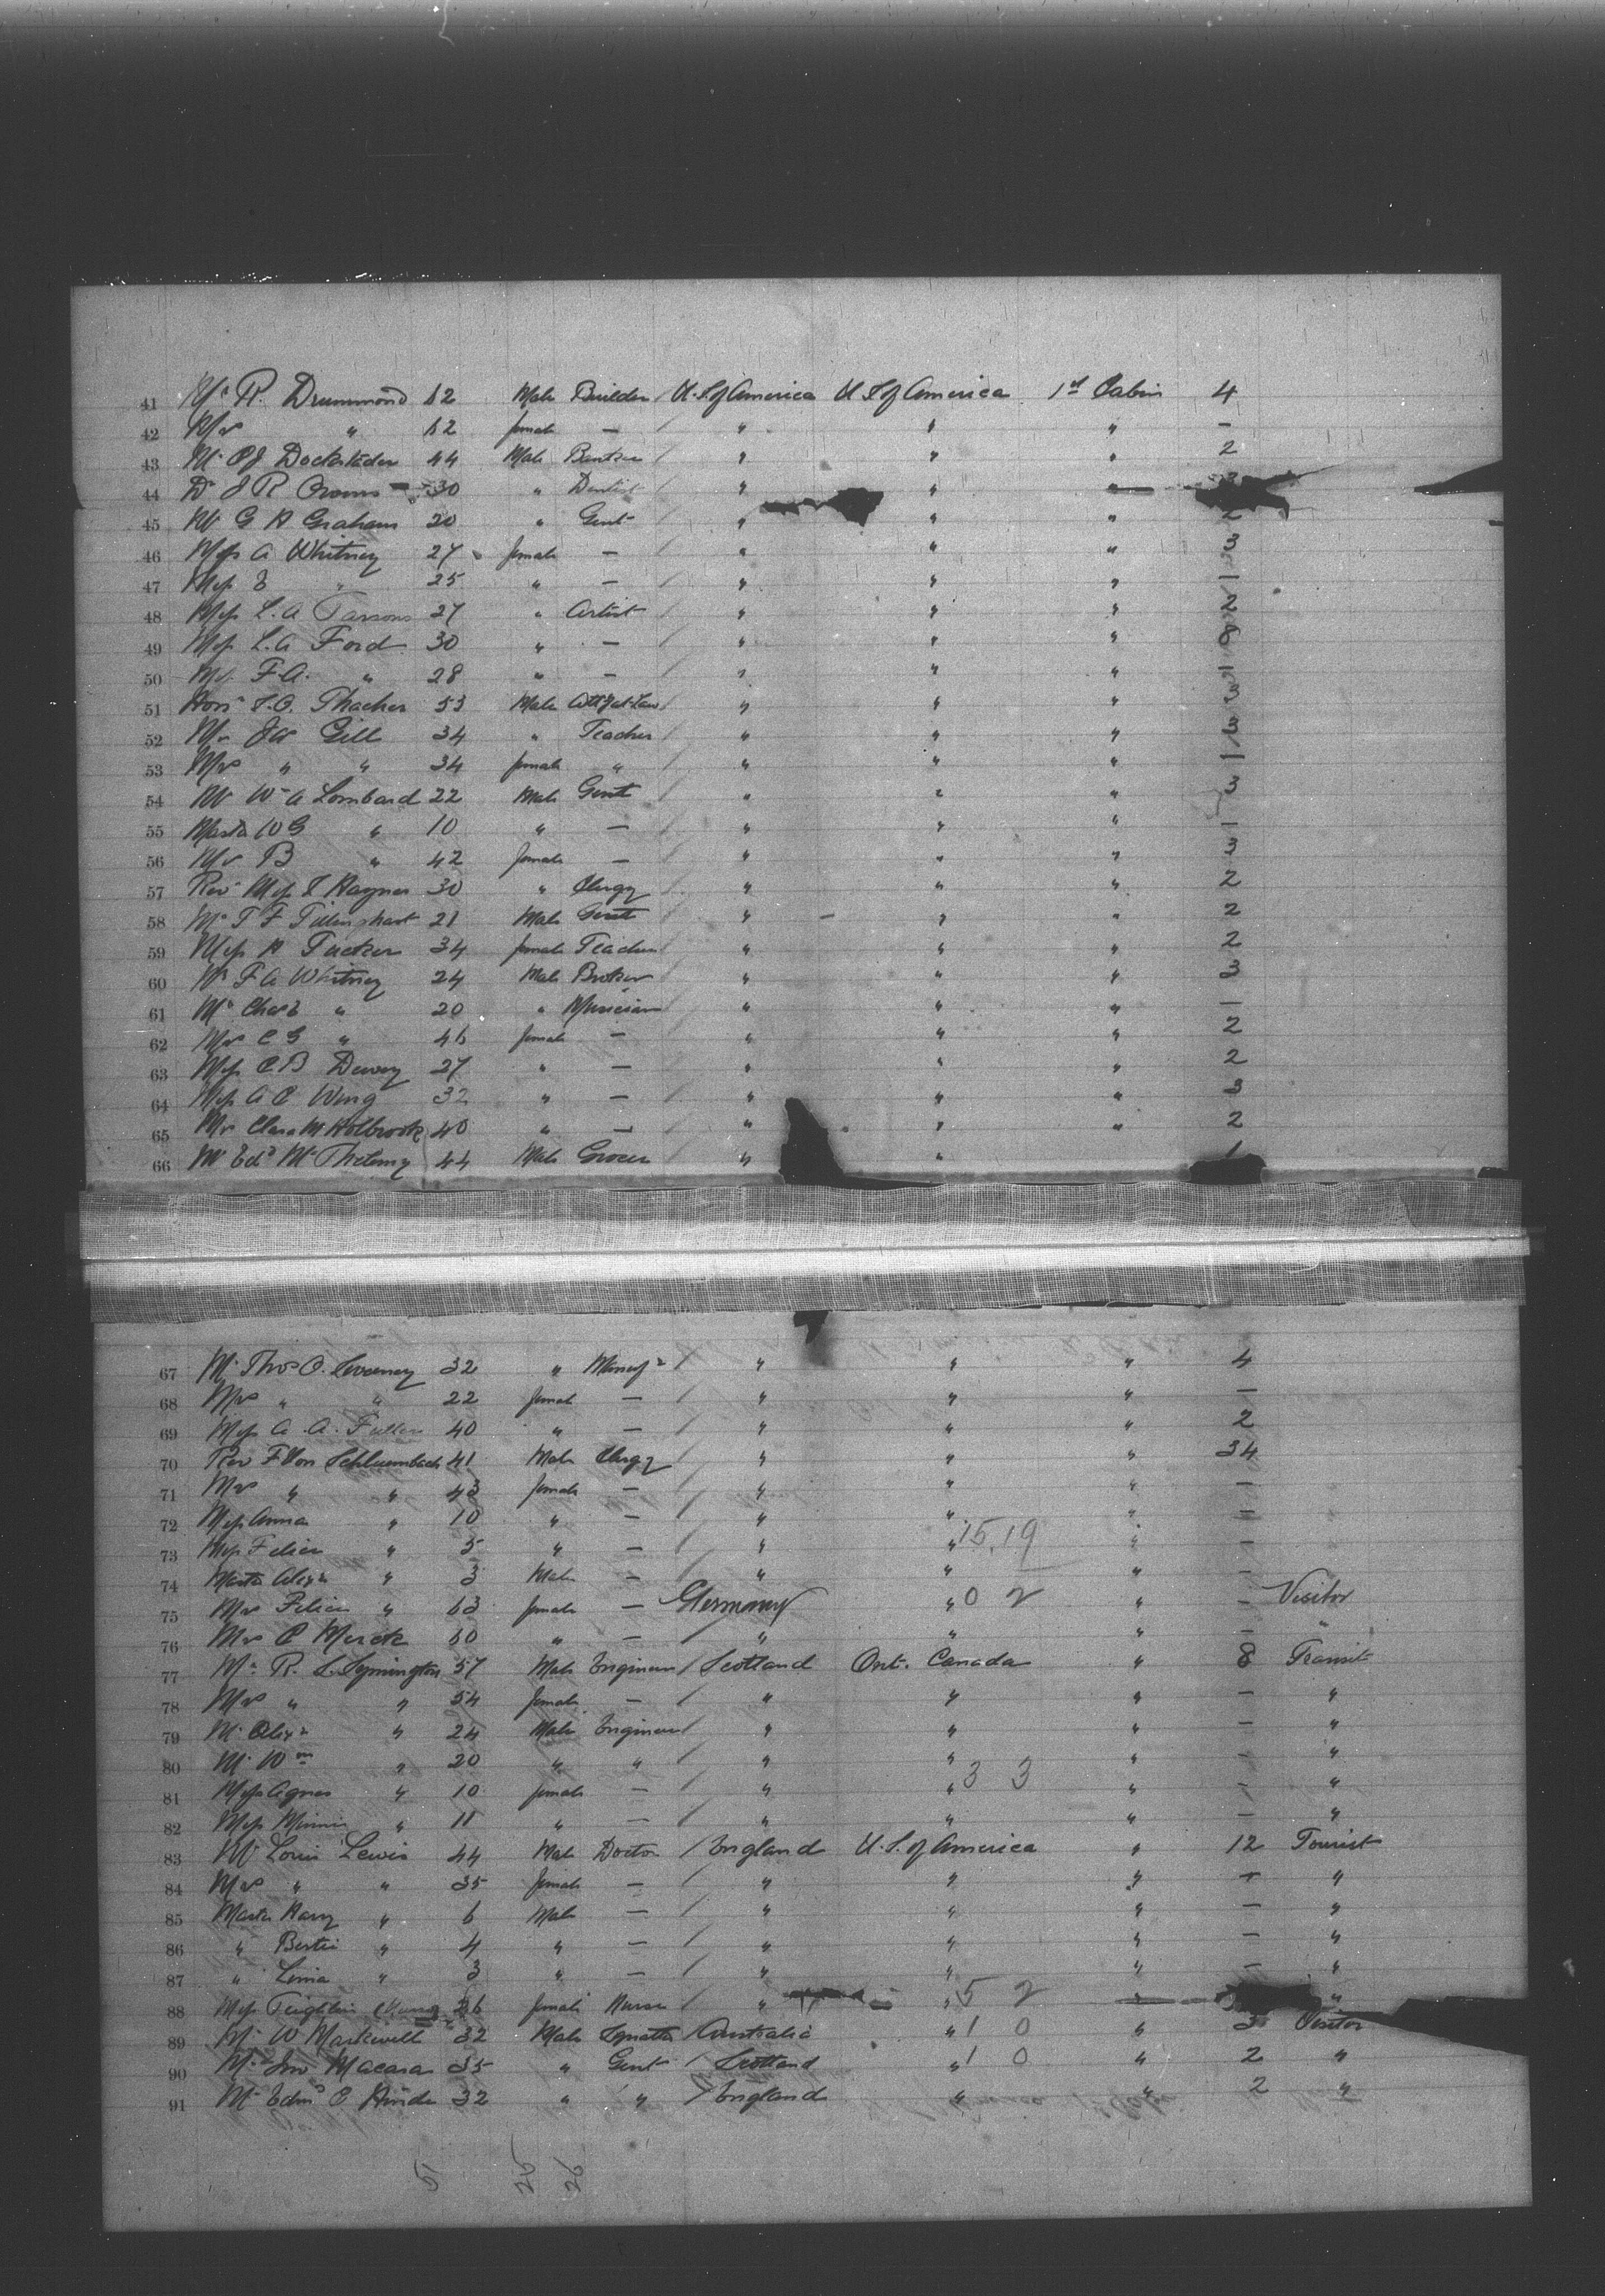 41 Mr R. Drummond 62 Male Builder / U.S. of America U S of America 1st Cabin 4
42 Mrs " 62 female — / " " " —
43 Mr Dockstader 44 Male Banker / " " " 2
44 Dr J R 30 " Dentist " " "
45 Mr G H Graham 20 " Gent / " " " 2
46 Miss A Whitney 27 female — / " " " 3
47 Miss E " 25 " — / " " " 1
48 Miss L. A Parsons 27 " Artist / " " " 2
49 Miss L. A Ford 30 " — / " " " 8
50 F. A. " 28 " — / " " " 1
51 Hon. Thacher 53 Male Atty at Law / " " " 3
52 Mr JW Gill 34 " Teacher / " " " 3
53 Mrs " " 34 female " / " " " 1
54 Mr W A Lombard 22 Male Gent / " " " 3
55 Master W G " 10 " — / " " " 1
56 Mrs B " 42 female — / " " " 3
57 Rev. Miss Haynes 30 " Clergy / " " " 2
58 Mr T F Tillinghast 21 Male Gent / " " " 2
59 Miss H Tucker 34 female Teacher / " " " 2
60 Mr F A Whitney 24 Male Broker / " " " 3
61 Mr Chas E " 20 " Musician / " " " 1
62 Mrs C G " 46 female — / " " " 2
63 Miss C B Dewey 27 " — / " " " 2
64 Miss A C Wing 32 " — / " " " 3
65 Mrs Clara M Holbrook 40 " — / " " " 2
66 Mr Edd 44 Male Grocer " " 1
67 Mr Thos O. Sweeney 32 " Manufr / " " " 4
68 Mrs " " 22 female — / " " " —
69 Miss A. A. Fuller 40 " — / " " " 2
70 Rev F Von Schluembach 41 Male Clergy / " " " 34
71 Mrs " " 43 female — / " " " —
72 Miss Anna " 10 " — / " " " —
73 Miss " 5 " — / " " 15.19 " —
74 Master Alexr " 3 Male — / " " " —
75 Mrs " 63 female — Germany " 0 2 " — Visitor
76 Mrs C Merck 60 " — / " " " — "
77 Mr R. L. Symington 57 Male Engineer / Scotland Ont. Canada " 8 Transit
78 Mrs " " 54 female — / " " " — "
79 Mr Alexr " 24 Male Engineer / " " " — "
80 Mr Wm " 20 " " / " " " — "
81 Miss Agnes " 10 female — / " " 3 3 " — "
82 Miss Minnie " 11 " — / " " " — "
83 Mr Louis Lewis 44 Male Doctor / England U.S. of America " 12 Tourist
84 Mrs " " 35 female — / " " " — "
85 Master Harry " 6 Male — / " " " — "
86 " Bertie " 4 " — / " " " — "
87 " " 3 " — / " " " — "
88 Miss 26 female Nurse / " " 5 2 " "
89 Mr W Markwell 32 Male / Australia " 1 0 " 3 Visitor
90 Mr Jno Macara 35 " Gent / Scotland " 1 0 " 2 "
91 Mr Edmd C Hinde 32 " " / England " " 2 "
51 25 26